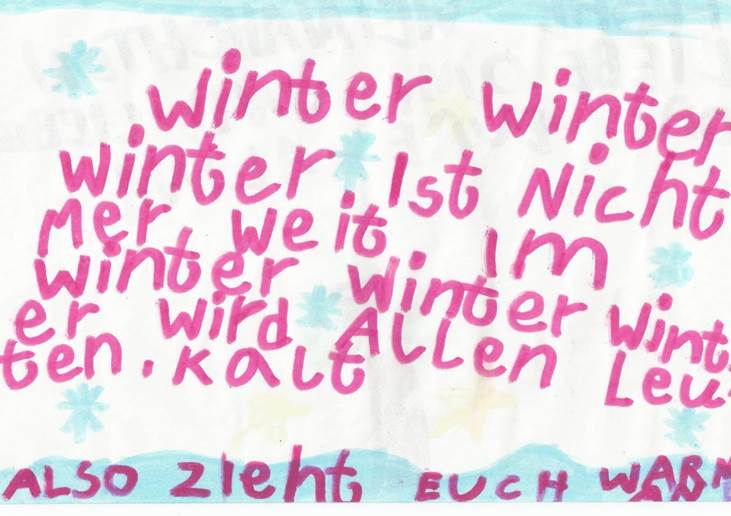 winter winter
winter Ist Nicht
Mer weit Im
winter winter Wint
er wird Allen Leu
ten. Kalt
ALSO ZIeht EUCH WARM